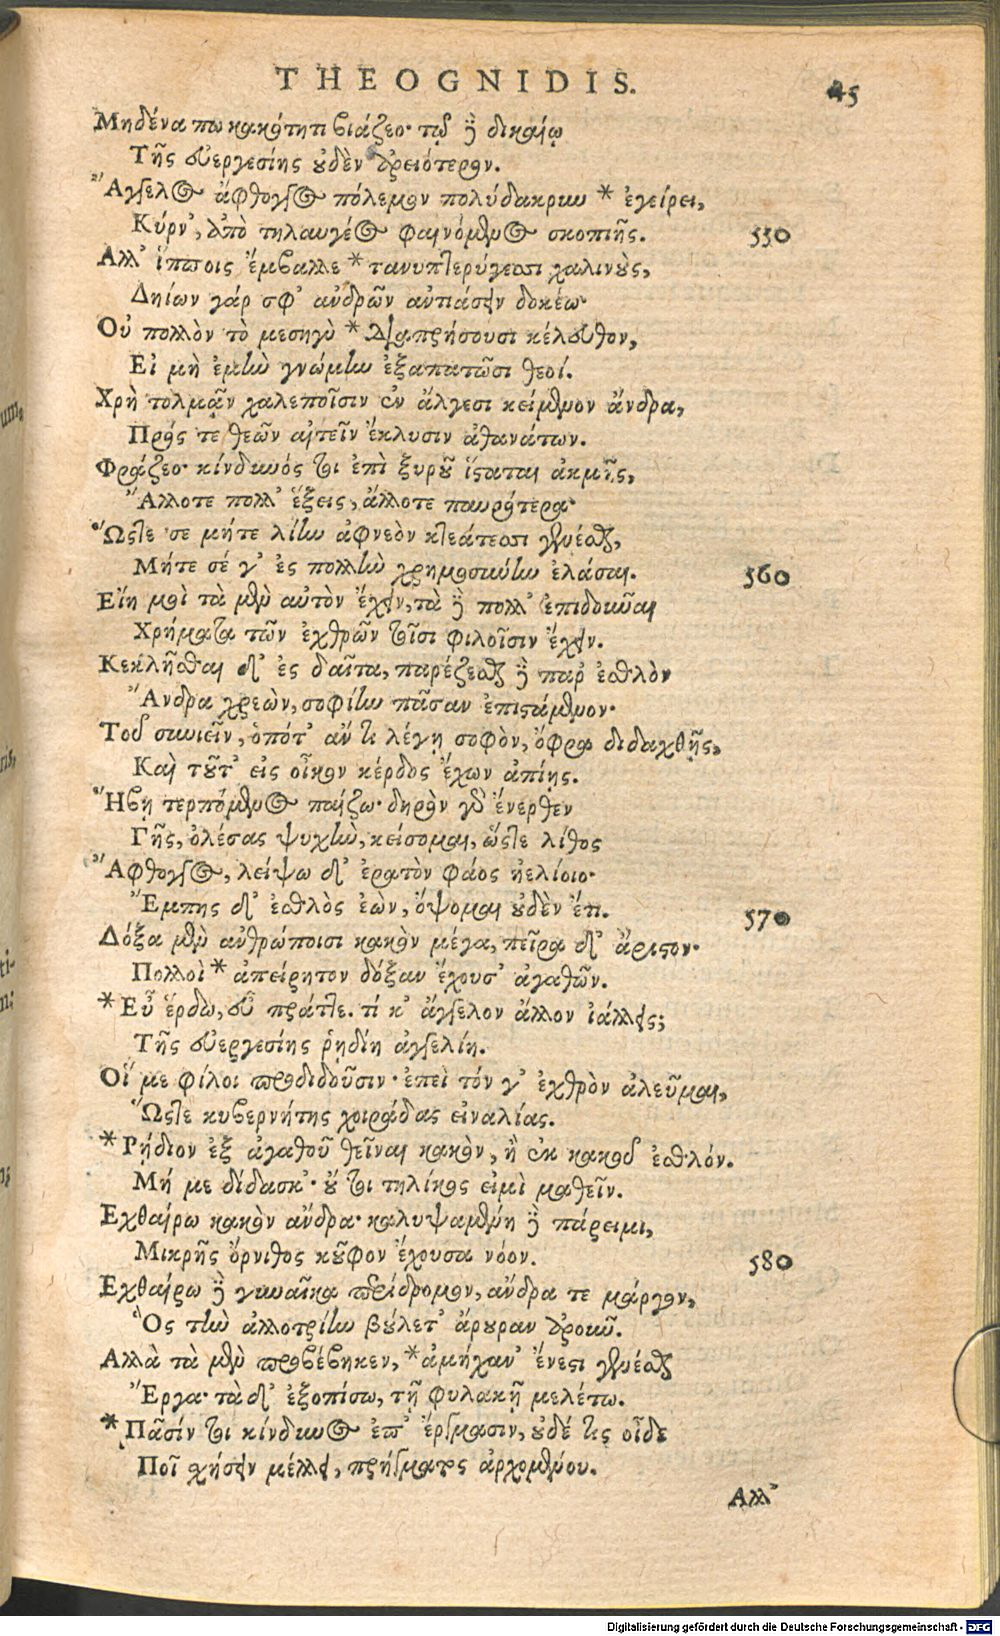 THEOGNIDIS. 45
Μηδένα πω κακότητι βιάζεο· τῷ δὲ δικαίῳ
Τῆς εὐεργεσίης οὐδὲν ἀρειότερον.
Ἄγγελος ἄφθογγος πόλεμον πολύδακρυν * ἐγείρει,
Κύρν', ἀπὸ τηλαυγέος φαινόμενος σκοπιῆς. 550
Ἀλλ' ἵπποις ἔμβαλλε * τανυπτερύγεσσι χαλινοὺς,
Δηίων γάρ σφ' ἀνδρῶν ἀντιάσειν δοκέω·
Οὐ πολλὸν τὸ μεσηγὺ * διαπρήσουσι κέλευθον,
Εἰ μὴ ἐμὴν γνώμην ἐξαπατῶσι θεοί.
Χρὴ τολμᾶν χαλεποῖσιν ἐν ἄλγεσι κείμενον ἄνδρα,
Πρός τε θεῶν αἰτεῖν ἔκλυσιν ἀθανάτων.
Φράζεο· κίνδυνός τοι ἐπὶ ξυροῦ ἵσταται ἀκμῆς,
Ἄλλοτε πολλ' ἕξεις, ἄλλοτε παυρότερα·
Ὥστε σε μήτε λίην ἀφνεὸν κτεάτεσσι γενέσθαι,
Μήτε σέ γ' ἐς πολλὴν χρημοσύνην ἐλάσαι. 560
Εἴη μοὶ τὰ μὲν αὐτὸν ἔχειν, τὰ δὲ πολλ' ἐπιδοῦναι
Χρήματα τῶν ἐχθρῶν τοῖσι φιλοῖσιν ἔχειν.
Κεκλῆσθαι δ' ἐς δαῖτα, παρέζεσθαι δὲ παρ' ἐσθλὸν
Ἄνδρα χρεὼν, σοφίην πᾶσαν ἐπιστάμενον·
Τοῦ συνιεῖν, ὁπότ' ἄν τι λέγῃ σοφὸν, ὄφρα διδαχθῇς,
Καὶ τοῦτ' εἰς οἶκον κέρδος ἔχων ἀπίῃς.
Ἥβῃ τερπόμενος παίζω· δηρὸν γὰρ ἔνερθεν
Γῆς, ὀλέσας ψυχὴν, κείσομαι, ὥστε λίθος
Ἄφθογγος, λείψω δ' ἐρατὸν φάος ἠελίοιο·
Ἔμπης δ' ἐσθλὸς ἐὼν, ὄψομαι οὐδὲν ἔτι. 570
Δόξα μὲν ἀνθρώποισι κακὸν μέγα, πεῖρα δ' ἄριστον·
Πολλοὶ * ἀπείρητον δόξαν ἔχουσ' ἀγαθῶν.
* Εὖ ἕρδω, εὖ πράττε. τί κ' ἄγγελον ἄλλον ἰάλλεις;
Τῆς εὐεργεσίης ῥηδίη ἀγγελίη.
Οἵ με φίλοι προδιδοῦσιν· ἐπεὶ τόν γ' ἐχθρὸν ἀλεῦμαι,
Ὥστε κυβερνήτης χοιράδας εἰναλίας.
* Ῥῄδιον ἐξ ἀγαθοῦ θεῖναι κακὸν, ἢ ἐκ κακοῦ ἐσθλόν.
Μή με δίδασκ'· οὔ τοι τηλίκος εἰμὶ μαθεῖν.
Ἐχθαίρω κακὸν ἄνδρα· καλυψαμένη δὲ πάρειμι,
Μικρῆς ὄρνιθος κοῦφον ἔχουσα νόον. 580
Ἐχθαίρω δὲ γυναῖκα περίδρομον, ἄνδρα τε μάργον,
Ὃς τὴν ἀλλοτρίην βούλετ' ἄρουραν ἀροῦν.
Ἀλλὰ τὰ μὲν προβέβηκεν, * ἀμήχαν' ἔνεστι γενέσθαι
Ἔργα· τὰ δ' ἐξοπίσω, τῇ φυλακῇ μελέτω.
* Πᾶσίν τοι κίνδυνος ἐπ' ἔργμασιν, οὐδέ τις οἶδε
Ποῖ σχήσειν μέλλει, πρήγματος ἀρχομένου.
Ἀλλ'
Digitalisierung gefördert durch die Deutsche Forschungsgemeinschaft - DFG